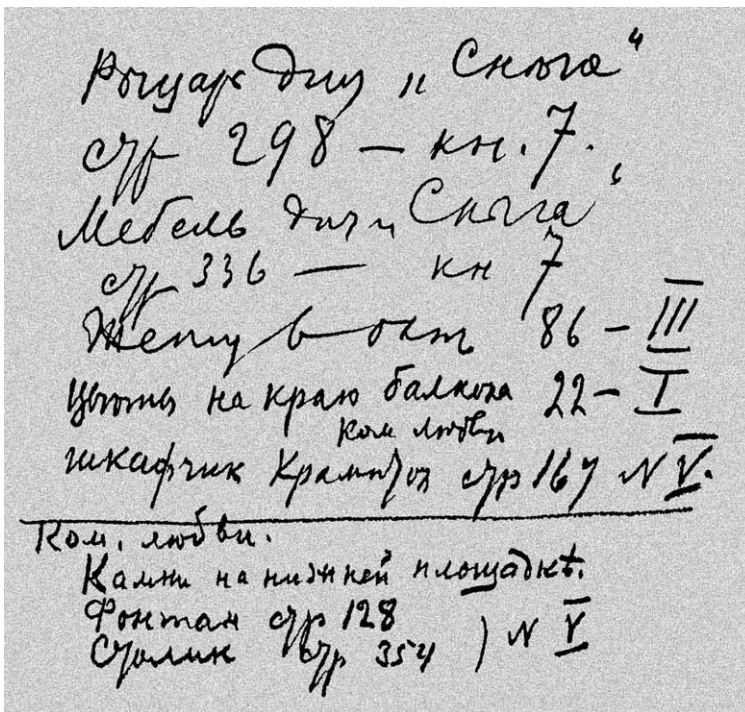 Рыцарь для „Снѣга“
стр 298 – кн. 7.
Мебель для „Снѣга“
стр 336 — кн 7
в окн 86 – III
Цвѣты на краю балкона 22 – I
Ком любви
шкафчик Крамптон стр 167 N V.
Ком. любви.
Камни на нижней площадкѣ.
Фонтан стр 128
Столик стр 354 ) N V